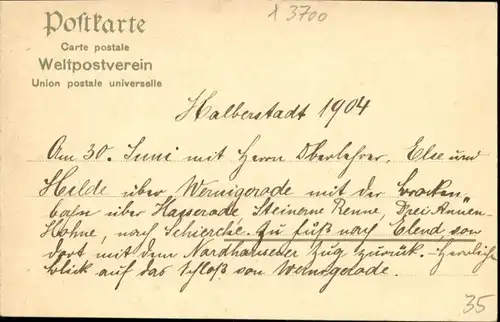 x 3700
Postkarte
Carte postale
Weltpostverein
Union postale universelle
Halberstadt 1904
Am 30. Juni mit Herrn Oberlehrer, Else und
Hilde über Wernigerode mit der Brocken-
bahn über Hasserode, Steinerne Renne, Drei-Annen-
Hohne, nach Schierke. Zu Fuß nach Elend von
dort mit dem Nordhausener Zug zurück. - Herrlicher
Blick auf das Schloß von Wernigerode.
35